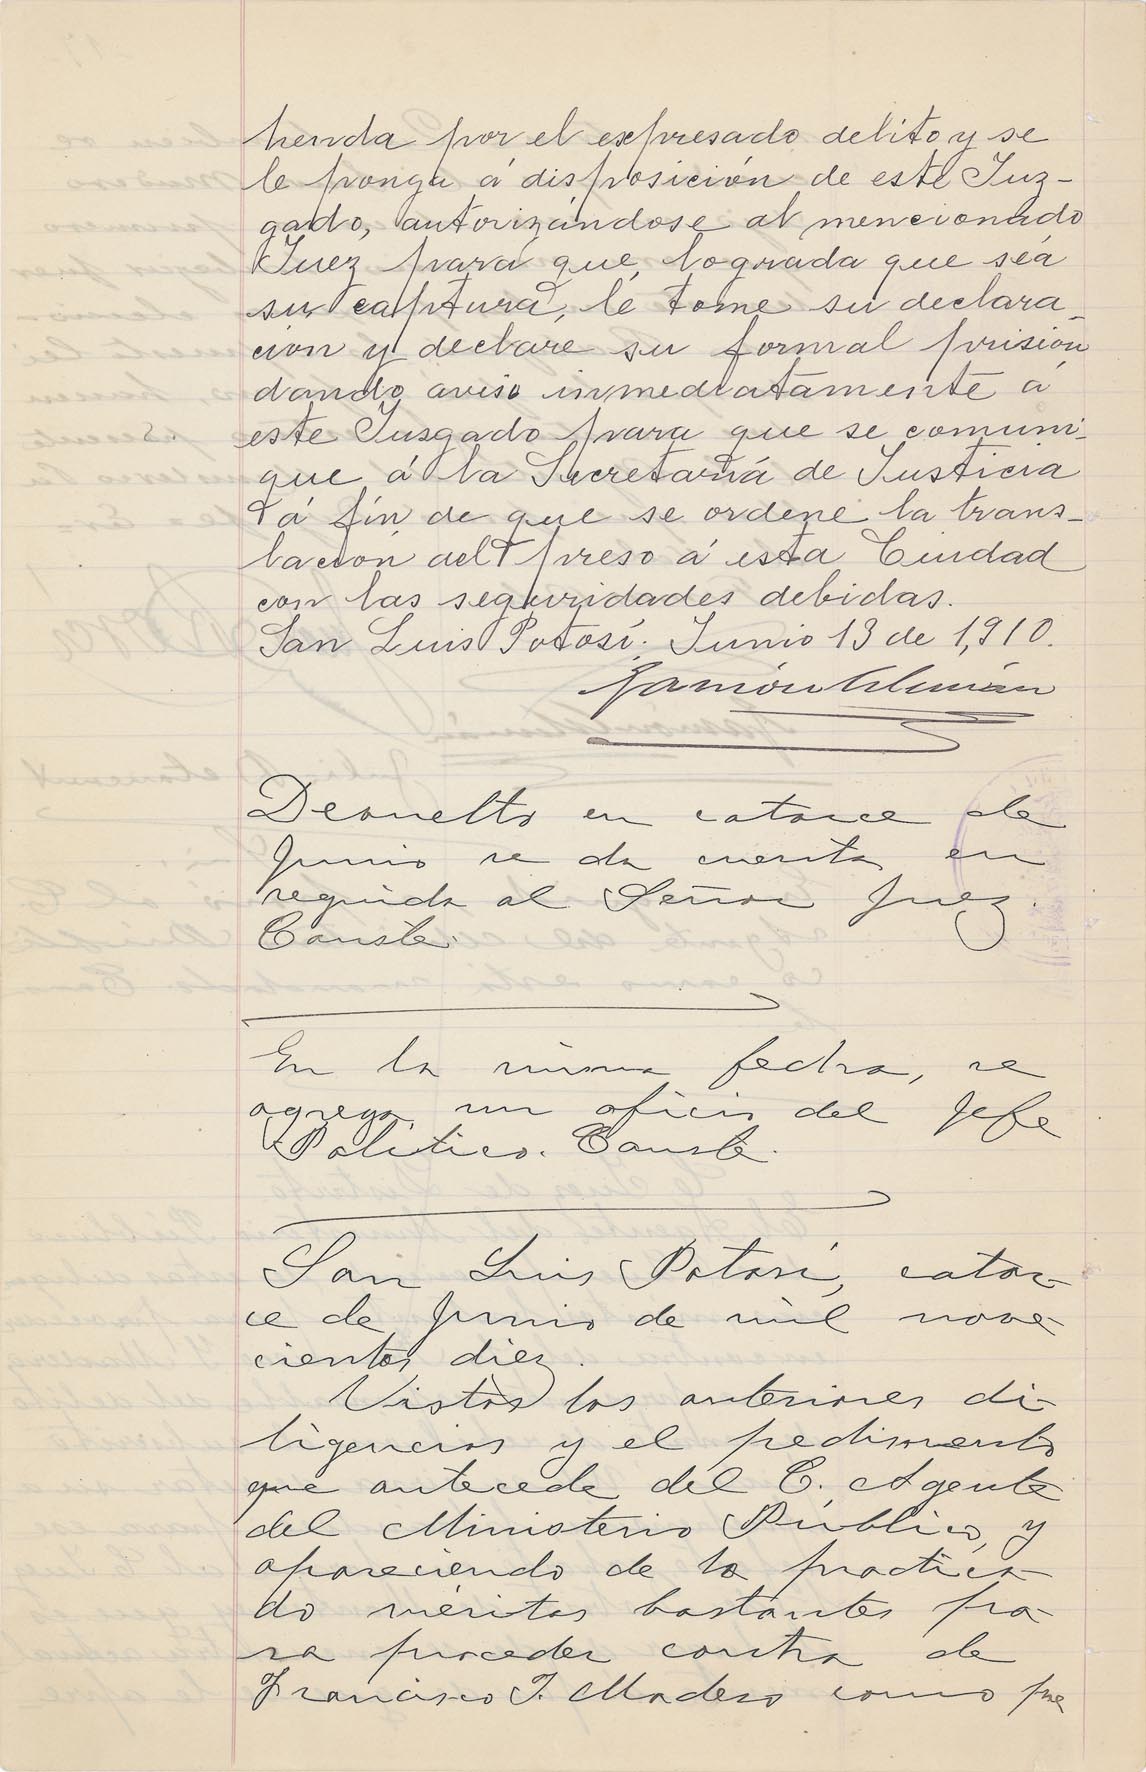 henda por el expresado delito y se
le ponga á disposición de este Juz-
gado, autorizándose al mencionado
Juez para que, lograda que séa
su captura, le tome su declara_
ción y declare su formal prisión
dando aviso inmediatamente á
este Jusgado para que se comuni_
que á la Secretaría de Justicia
á fín de que se ordene la trans_
lación del preso á esta Ciudad
con las seguridades debidas.
San Luis Potosí. Junio 13 de 1,910.
Ramón Alemán
Devuelto en catorce de
Junio se da cuenta en
seguida al Señor Juez.
Conste.
En la misma fecha, se
agrega un oficio del Jefe
Político. Conste.
San Luis Potosí, cator-
ce de Junio de mil nove-
cientos diez.
Vistas las anteriores di-
ligencias y el pedimento
que antecede del C. Agente
del Ministerio Público, y
apareciendo de lo practica-
do méritos bastantes pa-
ra proceder contra de
Francisco I. Madero como pre